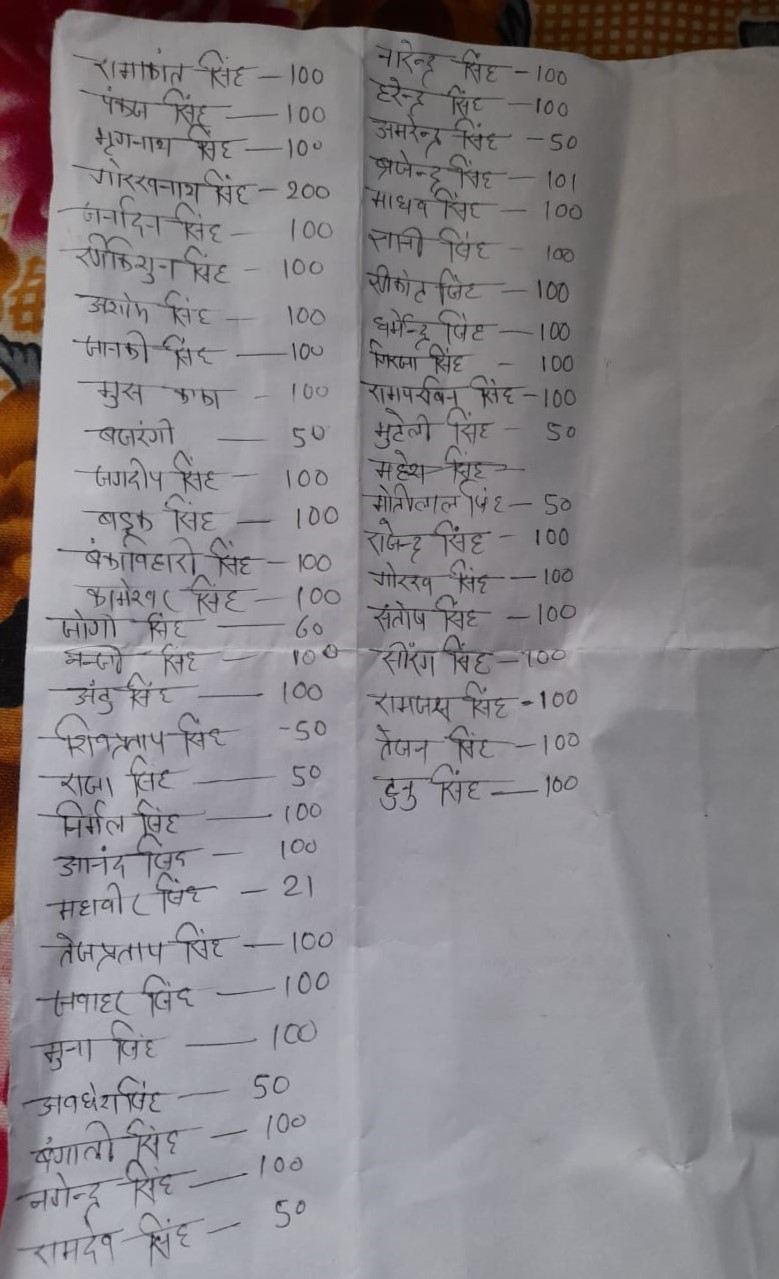 रामाकांत सिंह — 100
पंकज सिंह — 100
भृगुनाथ सिंह — 100
गोरखनाथ सिंह — 200
जर्नादन सिंह — 100
सिंह — 100
अशोक सिंह — 100
जानकी सिंह — 100
मुस काका - 100
बजरंगी — 50
जगदीप सिंह — 100
बड़क सिंह — 100
बंकाविहारी सिंह — 100
कामेश्वर सिंह — 100
जोगी सिंह — 60
सिंह — 100
अंदु सिंह — 100
शिवप्रताप सिंह - 50
राजा सिंह — 50
निर्मल सिंह — 100
आनंद सिंह — 100
महावीर सिंह — 21
तेजप्रताप सिंह — 100
जवाहर सिंह — 100
मुना सिंह — 100
अवधेश सिंह — 50
बंगाली सिंह — 100
नगेन्द्र सिंह — 100
रामदेव सिंह — 50
नारेन्द्र सिंह - 100
हरेन्द्र सिंह — 100
अमरेन्द्र सिंह - 50
ब्रजेन्द्र सिंह — 101
माधव सिंह — 100
सानी सिंह - 100
सिंह — 100
धर्मेन्द्र सिंह — 100
गिरजा सिंह - 100
सिंह - 100
मुटेली सिंह - 50
महेश सिंह —
मोतीलाल सिंह — 50
राजेन्द्र सिंह - 100
गोरख सिंह — 100
संतोष सिंह — 100
सिंह — 100
रामजस सिंह - 100
तेजन सिंह — 100
टुनु सिंह — 100